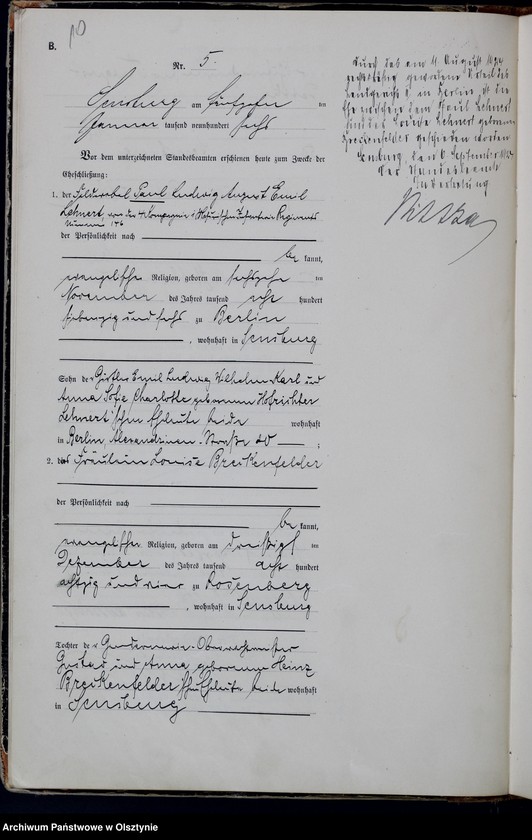 B.
10
Nr. 5.
Sensburg am fünfzehn ten
Januar tausend neunhundert sechs
Vor dem unterzeichneten Standesbeamten erschienen heute zum Zwecke der
Eheschließung:
1. der Feldwebel Paul Ludwig August Emil
Lehnert, von der Kompagnie Infanterie Regiments
Nummer 146
der Persönlichkeit nach
be kannt,
evangelischer Religion, geboren am sechszehn ten
November des Jahres tausend acht hundert
siebenzig und sechs zu Berlin
, wohnhaft in Sensburg
Sohn der Emil Ludwig Wilhelm Karl und
Anna Sofie Charlotte geborenen Hofrichter
Lehnert'schen Eheleute beide wohnhaft
in Berlin, Alexandrinen-Straße ;
2. das Fräulein Louise Breikenfelder
der Persönlichkeit nach
be kannt,
evangelischer Religion, geboren am dreißigst ten
Dezember des Jahres tausend acht hundert
achtzig und zu Rosenberg
, wohnhaft in Sensburg
Tochter der Gendarmerie-Oberwachtmeister
Gustav und Anna geborenen Heinz
Breikenfelder'schen Eheleute beide wohnhaft
in Sensburg
Durch das am 11. August
rechtskräftig gewordene Urteil des
Landgerichts in Berlin ist die
Ehe zwischen dem Paul Lehnert
und der Louise Lehnert geborenen
Breikenfelder geschieden worden
Sensburg, den September
Der Standesbeamte
In Vertretung
Archiwum Państwowe w Olsztynie